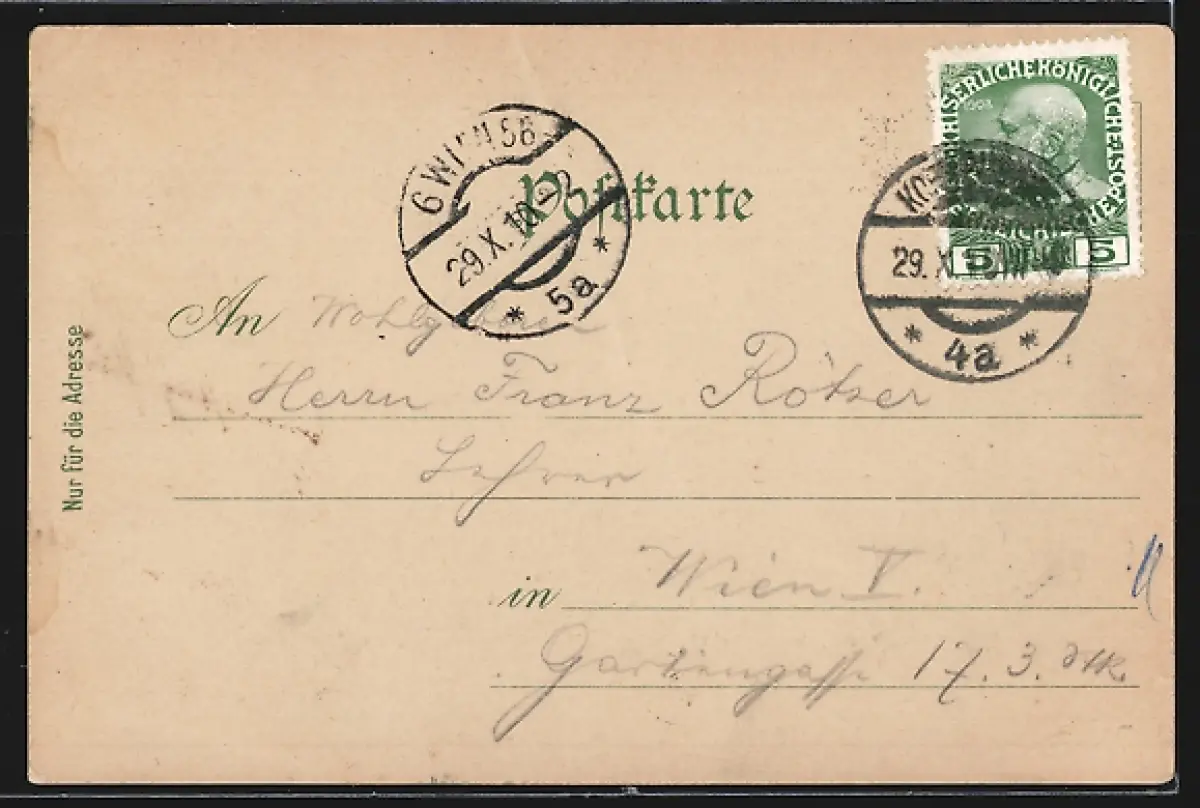 Postkarte
KAISERLICHE KÖNIGLICHE
1908
5 5
6 WIEN 56
29.X.10
* 5a *
29. X
* 4a *
Nur für die Adresse
An Wohlgeboren
Herrn Franz Rötzer
Lehrer
in Wien V.
Gartengasse 17. 3. Stk.